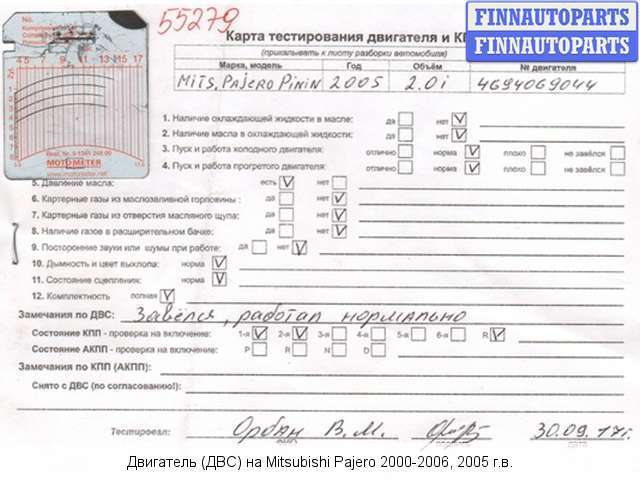 No.
55279
Карта тестирования двигателя и КП
FINNAUTOPARTS
FINNAUTOPARTS
(прикалывать к листу разборки автомобиля)
Марка, модель Год Объём № двигателя
Mits, Pajero Pinin 2005 2.0i 4G94069044
4 5 7 9 11 13 15 17
MOTOMETER
www.motometer.net
1. Наличие охлаждающей жидкости в масле: да нет V
2. Наличие масла в охлаждающей жидкости: да нет V
3. Пуск и работа холодного двигателя: отлично норма V плохо не завёлся
4. Пуск и работа прогретого двигателя: отлично норма V плохо не завёлся
5. Давление масла: есть V нет
6. Картерные газы из маслозаливной горловины : да нет V
7. Картерные газы из отверстия масляного щупа: да нет V
8. Наличие газов в расширительном бачке: да нет V
9. Посторонние звуки или шумы при работе: да нет V
10. Дымность и цвет выхлопа: норма V
11. Состояние сцепления: норма V
12. Комплектность полная V
Замечания по ДВС: Завёлся, работал нормально
Состояние КПП - проверка на включение: 1-я V 2-я V 3-я 4-я 5-я 6-я R V
Состояние АКПП - проверка на включение: P R N D
Замечания по КПП (АКПП):
Снято с ДВС (по согласованию!):
Тестировал: Орбан В.М. 30.09.17г.
Двигатель (ДВС) на Mitsubishi Pajero 2000-2006, 2005 г.в.